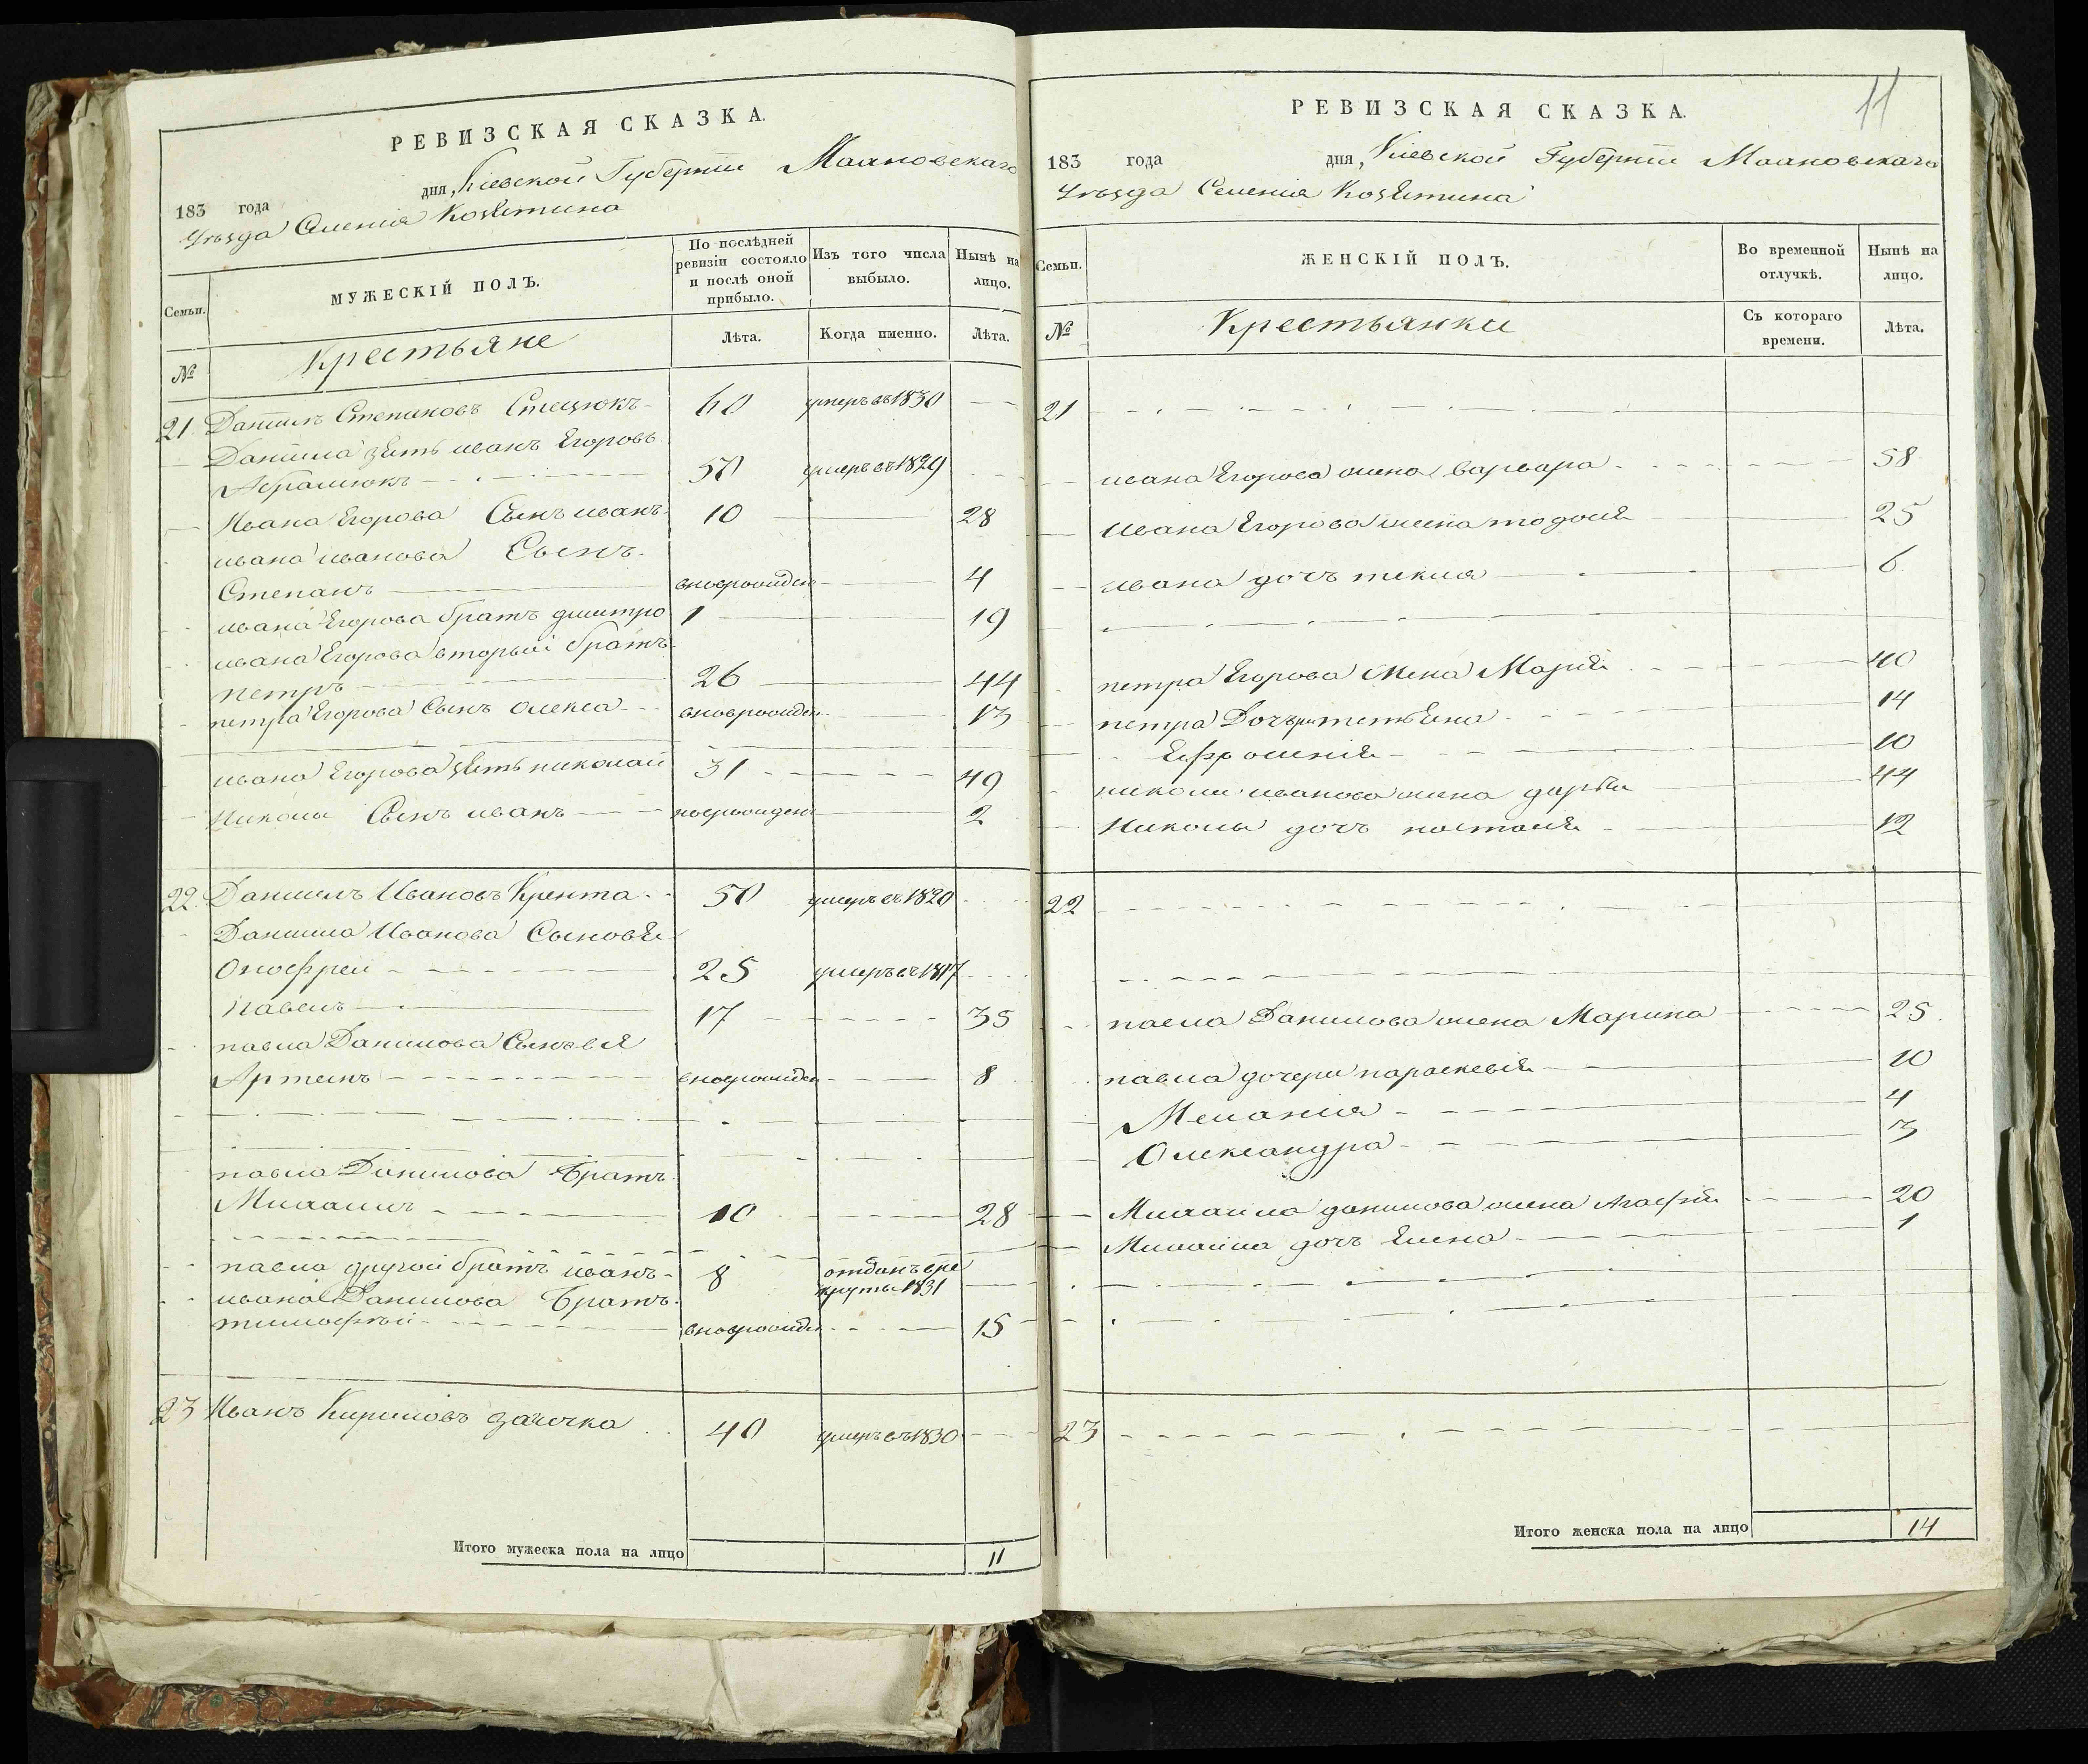 РЕВИЗСКАЯ СКАЗКА.
183 года дня, Кіевской Губерніи Махновскаго
Уѣзда Селенія Козятина
Семьи.
МУЖЕСКІЙ ПОЛЪ.
По послѣдней ревизіи состояло и послѣ оной прибыло.
Изъ того числа выбыло.
Нынѣ на лицо.
№
Крестьяне
Лѣта.
Когда именно.
Лѣта.
21. Данилъ Степановъ Стецюкъ 60 умеръ въ 1830
Данила зять иванъ Егоровъ
Абрамюкъ 50 умеръ въ 1829
Ивана Егорова Сынъ иванъ 10 28
ивана иванова Сынъ
Степанъ вновьрожден 4
ивана Егорова братъ дмитро 1 19
ивана Егорова вторый братъ
петръ 26 44
петра Егорова Сынъ олекса вновьрожден 13
ивана Егорова зять николай 31 49
Николы Сынъ иванъ новорожден 2
22. Данилъ Ивановъ 50 умеръ въ 1820
Данила Иванова Сыновья
Онофрей 25 умеръ въ 1817
Павелъ 17 35
павла Данилова Сыновья
Артемъ вновьрожден 8
павла Данилова Братъ
Михаилъ 10 28
павла другой братъ иванъ 8 отданъ в ре
круты 1831
ивана Данилова Братъ
тимофѣй вновьрожден 15
23 Иванъ Кириловъ 40 умеръ въ 1830
Итого мужеска пола на лицо 11
11
РЕВИЗСКАЯ СКАЗКА.
183 года дня, Кіевской Губерніи Махновскаго
Уѣзда Селенія Козятина
Семьи.
ЖЕНСКІЙ ПОЛЪ.
Во временной отлучкѣ.
Нынѣ на лицо.
№
Крестьянки
Съ котораго времени.
Лѣта.
21
ивана Егорова жена варвара 58
Ивана Егорова жена тодосія 25
ивана дочъ текля 6
петра Егорова жена Марія 40
петра Дочери тетяна 14
Ефросинія 10
николи иванова жена дарья 44
Николы дочъ настасія 12
22
павла Данилова жена Марина 25.
павла дочери параскевія 10
Меланія 4
Олександра 3
Михаила данилова жена Агафія 20
Михаила дочъ Елена 1
23
Итого женска пола на лицо 14